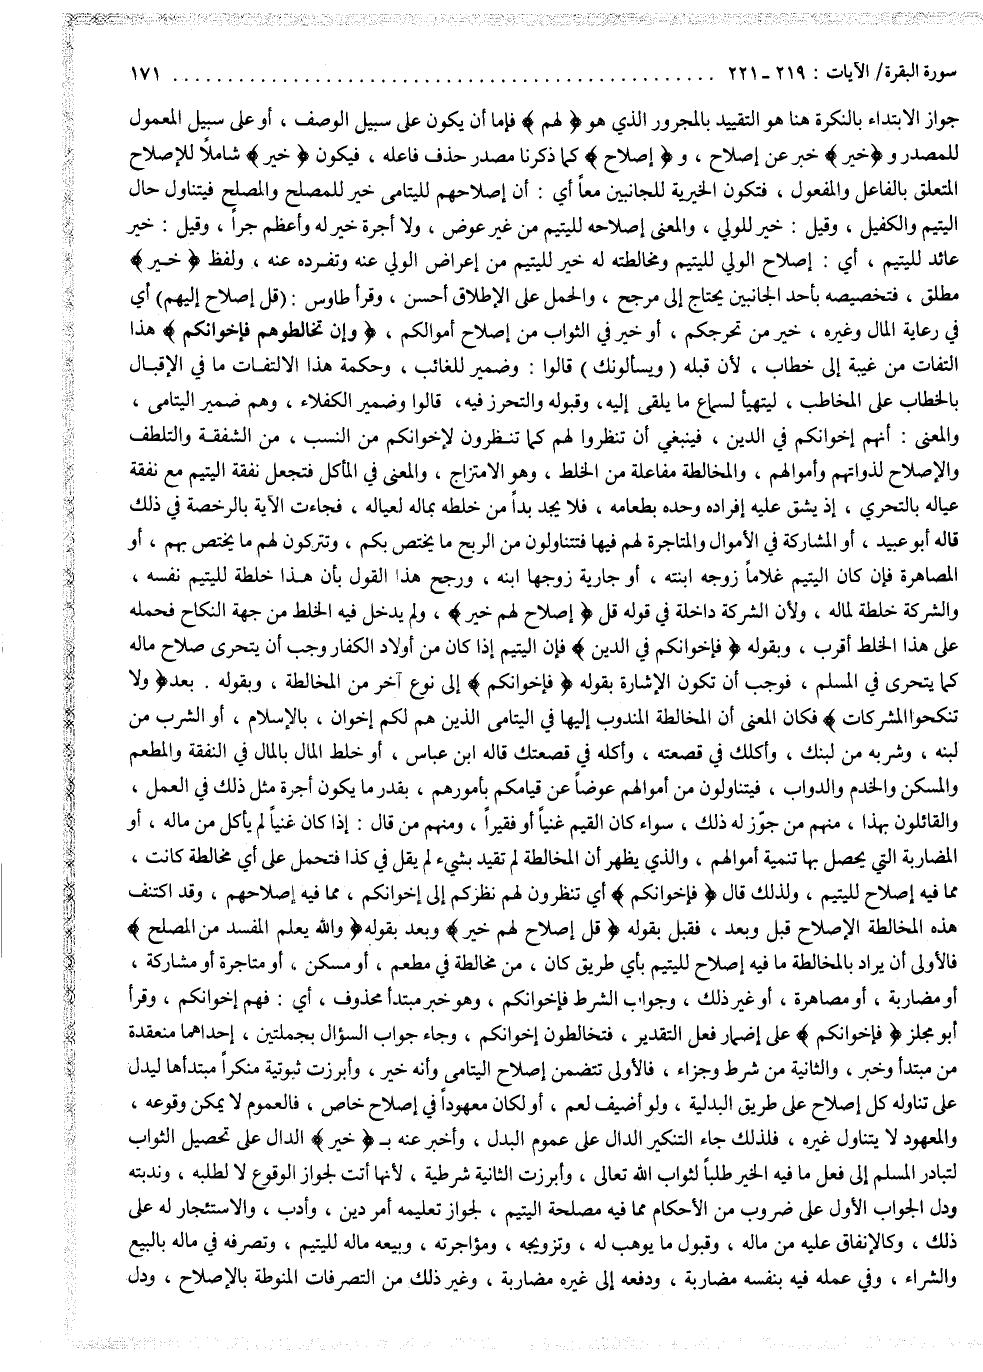 سورة البقرة/ الآيات : ٢١٩ ـ ٢٢١ .................................................. ١٧١
جواز الابتداء بالنكرة هنا هو التقييد بالمجرور الذي هو ﴿ لهم ﴾ فإما أن يكون على سبيل الوصف ، أو على سبيل المعمول
للمصدر و ﴿خير ﴾ خبر عن إصلاح ، و ﴿ إصلاح ﴾ كما ذكرنا مصدر حذف فاعله ، فيكون ﴿ خير ﴾ شاملاً للإصلاح
المتعلق بالفاعل والمفعول ، فتكون الخيرية للجانبين معاً أي : أن إصلاحهم لليتامى خير للمصلح والمصلح فيتناول حال
اليتيم والكفيل ، وقيل : خير للولي ، والمعنى إصلاحه لليتيم من غير عوض ، ولا أجرة خير له وأعظم جراً ، وقيل : خير
عائد لليتيم ، أي : إصلاح الولي لليتيم ومخالطته له خير لليتيم من إعراض الولي عنه وتفرده عنه ، ولفظ ﴿ خير ﴾
مطلق ، فتخصيصه بأحد الجانبين يحتاج إلى مرجح ، والحمل على الإطلاق أحسن ، وقرأ طاوس : (قل إصلاح إليهم) أي
في رعاية المال وغيره ، خير من تحرجكم ، أو خير في الثواب من إصلاح أموالكم ، ﴿ وإن تخالطوهم فإخوانكم ﴾ هذا
التفات من غيبة إلى خطاب ، لأن قبله ( ويسألونك ) قالوا : وضمير للغائب ، وحكمة هذا الالتفات ما في الإقبال
بالخطاب على المخاطب ، ليتهيأ لسماع ما يلقى إليه، وقبوله والتحرز فيه، قالوا وضمير الكفلاء ، وهم ضمير اليتامى ،
والمعنى : أنهم إخوانكم في الدين ، فينبغي أن تنظروا لهم كما تنظرون لإخوانكم من النسب ، من الشفقة والتلطف
والإصلاح لذواتهم وأموالهم ، والمخالطة مفاعلة من الخلط ، وهو الامتزاج ، والمعنى في المأكل فتجعل نفقة اليتيم مع نفقة
عياله بالتحري ، إذ يشق عليه إفراده وحده بطعامه ، فلا يجد بداً من خلطه بماله لعياله ، فجاءت الآية بالرخصة في ذلك
قاله أبو عبيد ، أو المشاركة في الأموال والمتاجرة لهم فيها فتتناولون من الربح ما يختص بكم ، وتتركون لهم ما يختص بهم ، أو
المصاهرة فإن كان اليتيم غلاماً زوجه ابنته ، أو جارية زوجها ابنه ، ورجح هذا القول بأن هذا خلطة لليتيم نفسه ،
والشركة خلطة لماله ، ولأن الشركة داخلة في قوله قل ﴿ إصلاح لهم خير ﴾ ، ولم يدخل فيه الخلط من جهة النكاح فحمله
على هذا الخلط أقرب ، وبقوله ﴿ فإخوانكم في الدين ﴾ فإن اليتيم إذا كان من أولاد الكفار وجب أن يتحرى صلاح ماله
كما يتحرى في المسلم ، فوجب أن تكون الإشارة بقوله ﴿ فإخوانكم ﴾ إلى نوع آخر من المخالطة ، وبقوله . بعد﴿ ولا
تنكحوا المشركات ﴾ فكان المعنى أن المخالطة المندوب إليها في اليتامى الذين هم لكم إخوان ، بالإسلام ، أو الشرب من
لبنه ، وشربه من لبنك ، وأكلك في قصعته ، وأكله في قصعتك قاله ابن عباس ، أو خلط المال بالمال في النفقة والمطعم
والمسكن والخدم والدواب ، فيتناولون من أموالهم عوضاً عن قيامكم بأمورهم ، بقدر ما يكون أجرة مثل ذلك في العمل ،
والقائلون بهذا ، منهم من جوّز له ذلك ، سواء كان القيم غنياً أو فقيراً ، ومنهم من قال : إذا كان غنياً لم يأكل من ماله ، أو
المضاربة التي يحصل بها تنمية أموالهم ، والذي يظهر أن المخالطة لم تقيد بشيء لم يقل في كذا فتحمل على أي مخالطة كانت ،
مما فيه إصلاح لليتيم ، ولذلك قال ﴿ فإخوانكم ﴾ أي تنظرون لهم نظركم إلى إخوانكم ، مما فيه إصلاحهم ، وقد اكتنف
هذه المخالطة الإصلاح قبل وبعد ، فقبل بقوله ﴿ قل إصلاح لهم خير ﴾ وبعد بقوله﴿ والله يعلم المفسد من المصلح ﴾
فالأولى أن يراد بالمخالطة ما فيه إصلاح لليتيم بأي طريق كان ، من مخالطة في مطعم ، أو مسكن ، أو متاجرة أو مشاركة ،
أو مضاربة ، أو مصاهرة ، أو غير ذلك ، وجواب الشرط فإخوانكم ، وهو خبر مبتدأ محذوف ، أي : فهم إخوانكم ، وقرأ
أبو مجلز ﴿ فإخوانكم ﴾ على إضمار فعل التقدير ، فتخالطون إخوانكم ، وجاء جواب السؤال بجملتين ، إحداهما منعقدة
من مبتدأ وخبر ، والثانية من شرط وجزاء ، فالأولى تتضمن إصلاح اليتامى وأنه خير ، وأبرزت ثبوتية منكراً مبتدأها ليدل
على تناوله كل إصلاح على طريق البدلية ، ولو أضيف لعم ، أو لكان معهوداً في إصلاح خاص ، فالعموم لا يمكن وقوعه ،
والمعهود لا يتناول غيره ، فلذلك جاء التنكير الدال على عموم البدل ، وأخبر عنه بـ ﴿ خير ﴾ الدال على تحصيل الثواب
لتبادر المسلم إلى فعل ما فيه الخير طلباً لثواب الله تعالى ، وأبرزت الثانية شرطية ، لأنها أتت لجواز الوقوع لا لطلبه ، وندبته
ودل الجواب الأول على ضروب من الأحكام مما فيه مصلحة اليتيم ، لجواز تعليمه أمر دين ، وأدب ، والاستئجار له على
ذلك ، وكالإنفاق عليه من ماله ، وقبول ما يوهب له ، وتزويجه ، ومؤاجرته ، وبيعه ماله لليتيم ، وتصرفه في ماله بالبيع
والشراء ، وفي عمله فيه بنفسه مضاربة ، ودفعه إلى غيره مضاربة ، وغير ذلك من التصرفات المنوطة بالإصلاح ، ودل